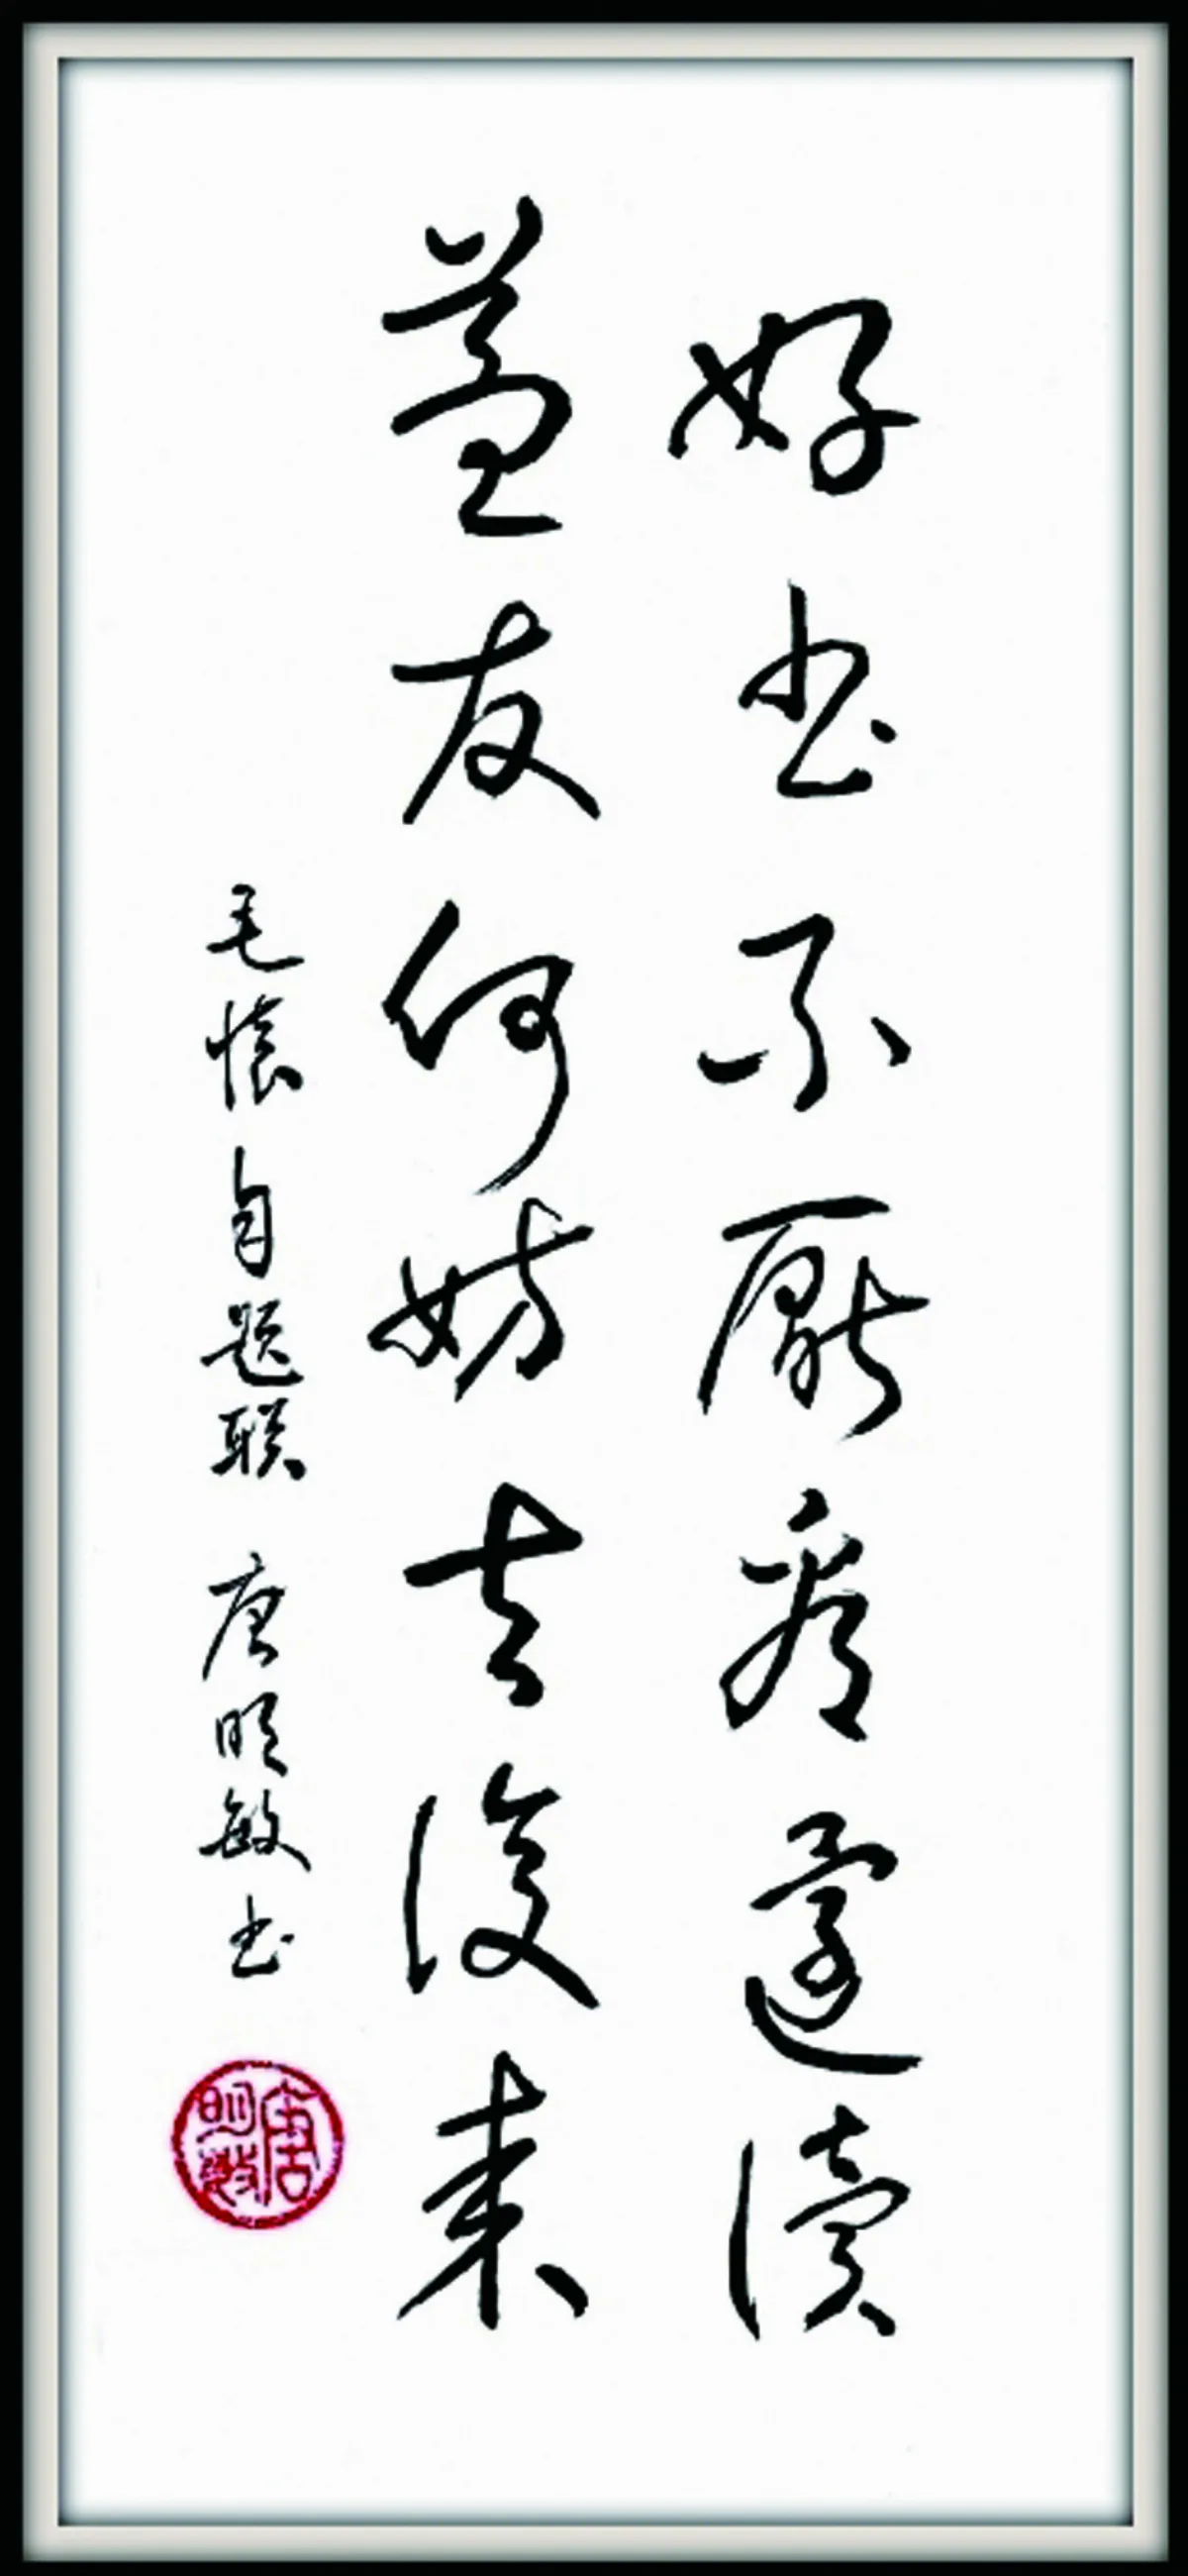 好书不厭看還讀
益友何妨去復来
毛懷自题联 唐明敏书
唐明敏